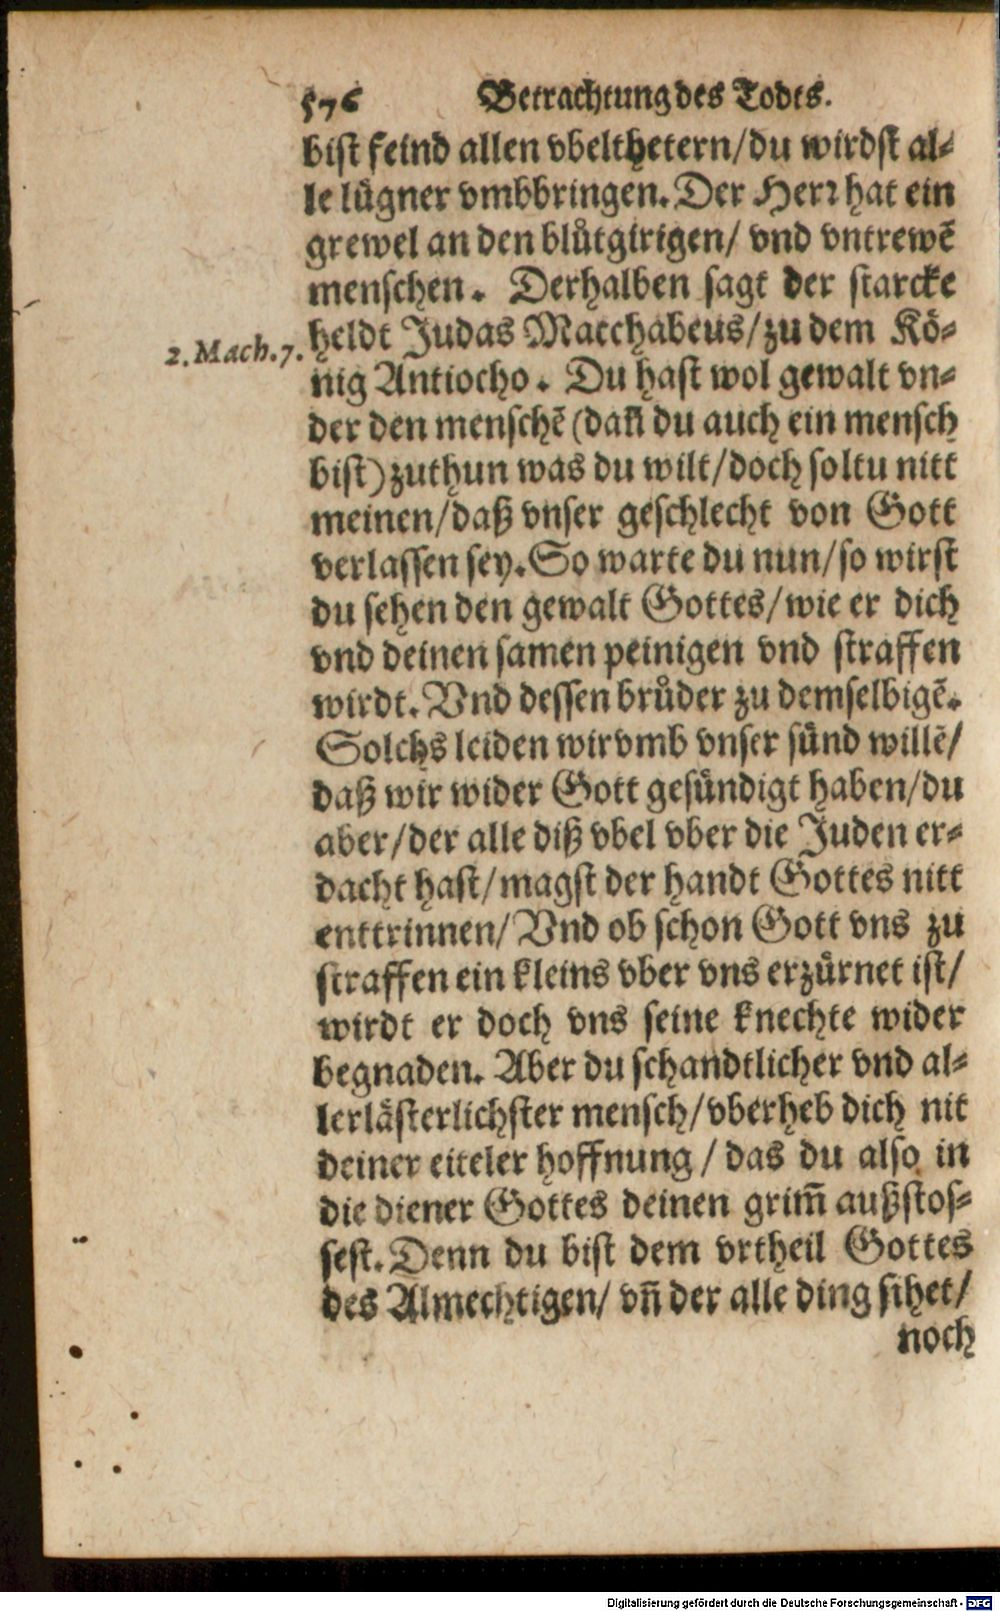 576 Betrachtung des Todts.
bist feind allen vbelthetern/du wirdst al-
le lügner vmbbringen. Der Herr hat ein
grewel an den blůtgirigen/ vnd vntrewē
menschen. Derhalben sagt der starcke
heldt Judas Macchabeus/zu dem Kö-
2. Mach. 7.
nig Antiocho. Du hast wol gewalt vn-
der den menschē (dañ du auch ein mensch
bist) zuthun was du wilt/doch soltu nitt
meinen/daß vnser geschlecht von Gott
verlassen sey. So warte du nun/so wirst
du sehen den gewalt Gottes/wie er dich
vnd deinen samen peinigen vnd straffen
wirdt. Vnd dessen brůder zu demselbigē.
Solchs leiden wir vmb vnser sünd willē/
daß wir wider Gott gesündigt haben/du
aber/der alle diß vbel vber die Juden er-
dacht hast/magst der handt Gottes nitt
enttrinnen/ Vnd ob schon Gott vns zu
straffen ein kleins vber vns erzürnet ist/
wirdt er doch vns seine knechte wider
begnaden. Aber du schandtlicher vnd al-
lerlästerlichster mensch/vberheb dich nit
deiner eiteler hoffnung/das du also in
die diener Gottes deinen grim̃ außstos-
sest. Denn du bist dem vrtheil Gottes
des Almechtigen/ vñ der alle ding sihet/
noch
Digitalisierung gefördert durch die Deutsche Forschungsgemeinschaft - DFG